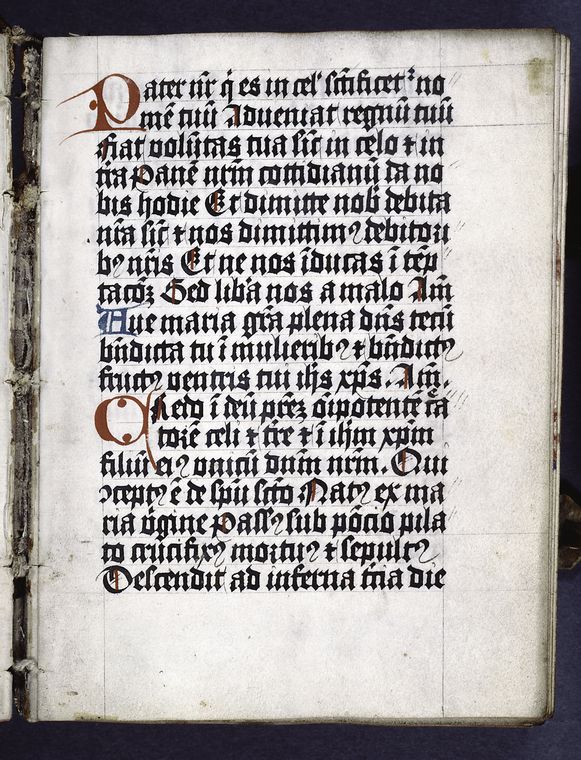 Pater nr̄ q̄ es in cel' sctīficet᷑ no
mē tuū Adueniat regnū tuū
Fiat volūtas tua sic̄ in celo ⁊ in
tr̄a Panē nrm̄ cottidianū da no
bis hodie Et dimitte nob̄ debita
nrā sic̄ ⁊ nos dimittimꝰ debitori
bꝰ nrīs Et ne nos īducas ī tēp
tacōꝫ Sed lib̄a nos a malo Am̄
Aue maria gr̄a plena dn̄s tecū
bn̄dicta tu ī mulieribꝰ ⁊ bn̄dictꝰ
fructꝰ ventris tui ih̄s xp̄s. Am̄.
Credo ī deū prēꝫ oīpotentē c̄a
torē celi ⁊ tr̄e ⁊ ī ih̄m xp̄m
filiū eiꝰ vnicū dn̄m nrm̄. Qui
ꝯceptꝰ ē de spū scto᷑ Natꝰ ex ma
ria v̄gine Passꝰ sub pōcio pila
to crucifixꝰ mortuꝰ ⁊ sepultꝰ
Descendit ad inferna t̄cia die